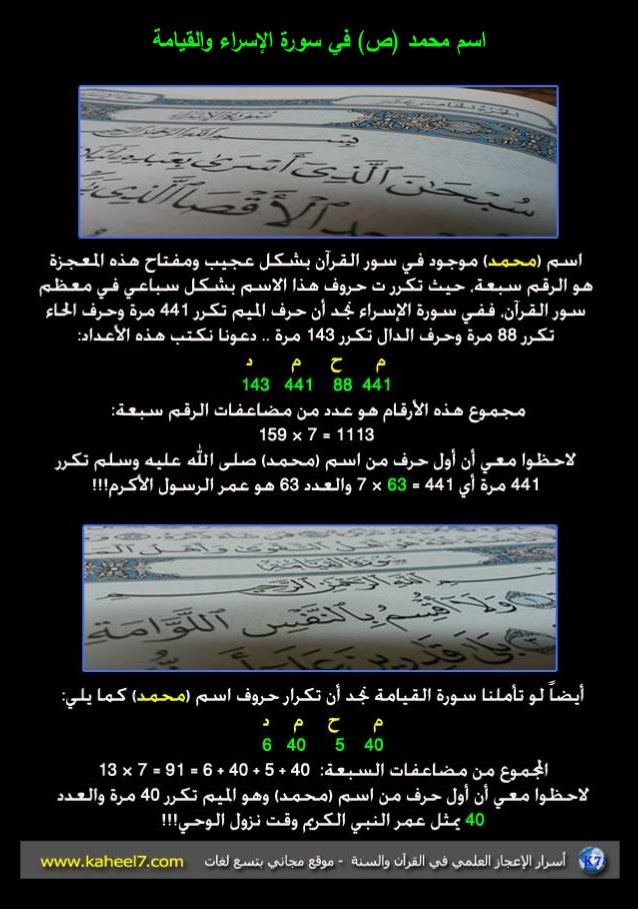 اسم محمد (ص) في سورة الإسراء والقيامة
سُبْحَٰنَ ٱلَّذِىٓ أَسْرَىٰ بِعَبْدِهِۦ
ٱلْأَقْصَا ٱلَّذِى
اسم (محمد) موجود في سور القرآن بشكل عجيب ومفتاح هذه المعجزة
هو الرقم سبعة، حيث تكرر ت حروف هذا الاسم بشكل سباعي في معظم
سور القرآن، ففي سورة الإسراء نجد أن حرف الميم تكرر 441 مرة وحرف الحاء
تكرر 88 مرة وحرف الدال تكرر 143 مرة .. دعونا نكتب هذه الأعداد:
م ح م د
441 88 441 143
مجموع هذه الأرقام هو عدد من مضاعفات الرقم سبعة:
1113 = 7 × 159
لاحظوا معي أن أول حرف من اسم (محمد) صلى الله عليه وسلم تكرر
441 مرة أي 441 = 63 × 7 والعدد 63 هو عمر الرسول الأكرم!!!
سورة القيامة
وَلَآ أُقْسِمُ بِٱلنَّفْسِ ٱللَّوَّامَةِ
بَلَىٰ قَٰدِرِينَ عَلَىٰٓ
أيضاً لو تأملنا سورة القيامة نجد أن تكرار حروف اسم (محمد) كما يلي:
م ح م د
40 5 40 6
المجموع من مضاعفات السبعة: 40 + 5 + 40 + 6 = 91 = 7 × 13
لاحظوا معي أن أول حرف من اسم (محمد) وهو الميم تكرر 40 مرة والعدد
40 يمثل عمر النبي الكريم وقت نزول الوحي!!!
أسرار الإعجاز العلمي في القرآن والسنة - موقع مجاني بتسع لغات www.kaheel7.com
K7